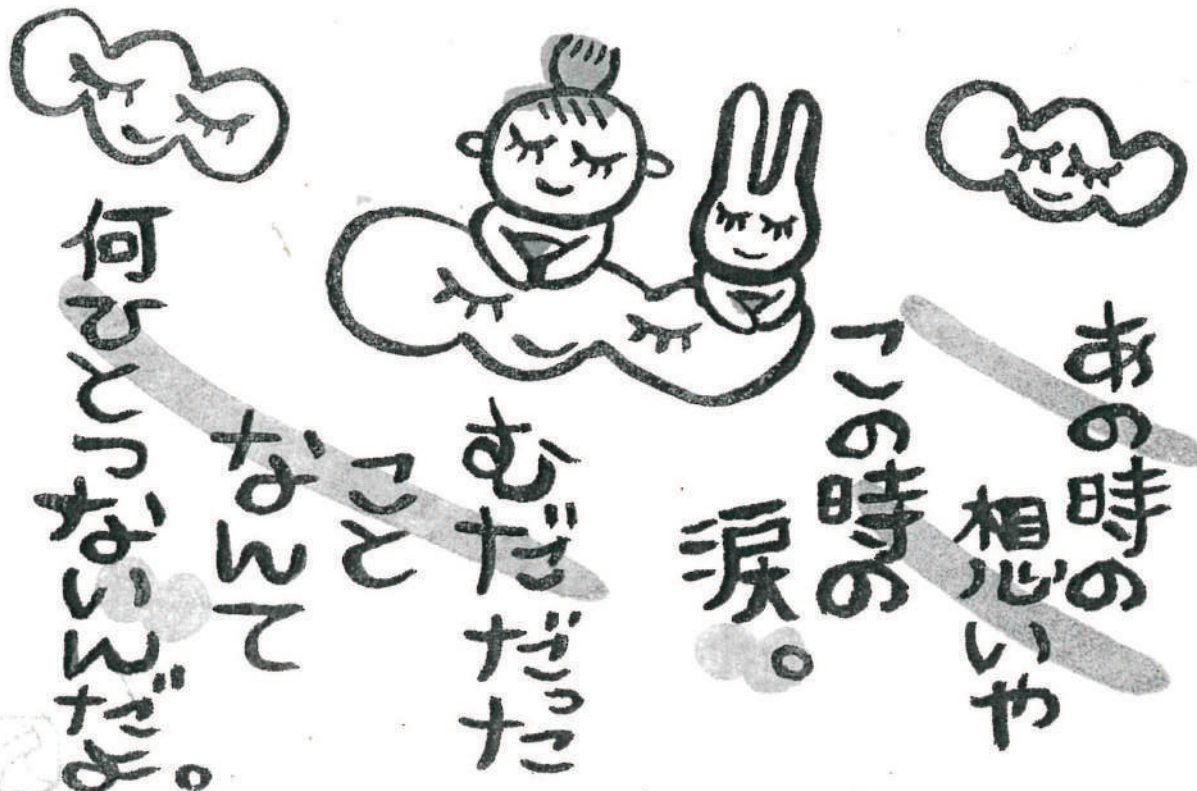 あの時の
想いや
この時の
涙。
むだだった
こと
なんて
何ひとつないんだよ。